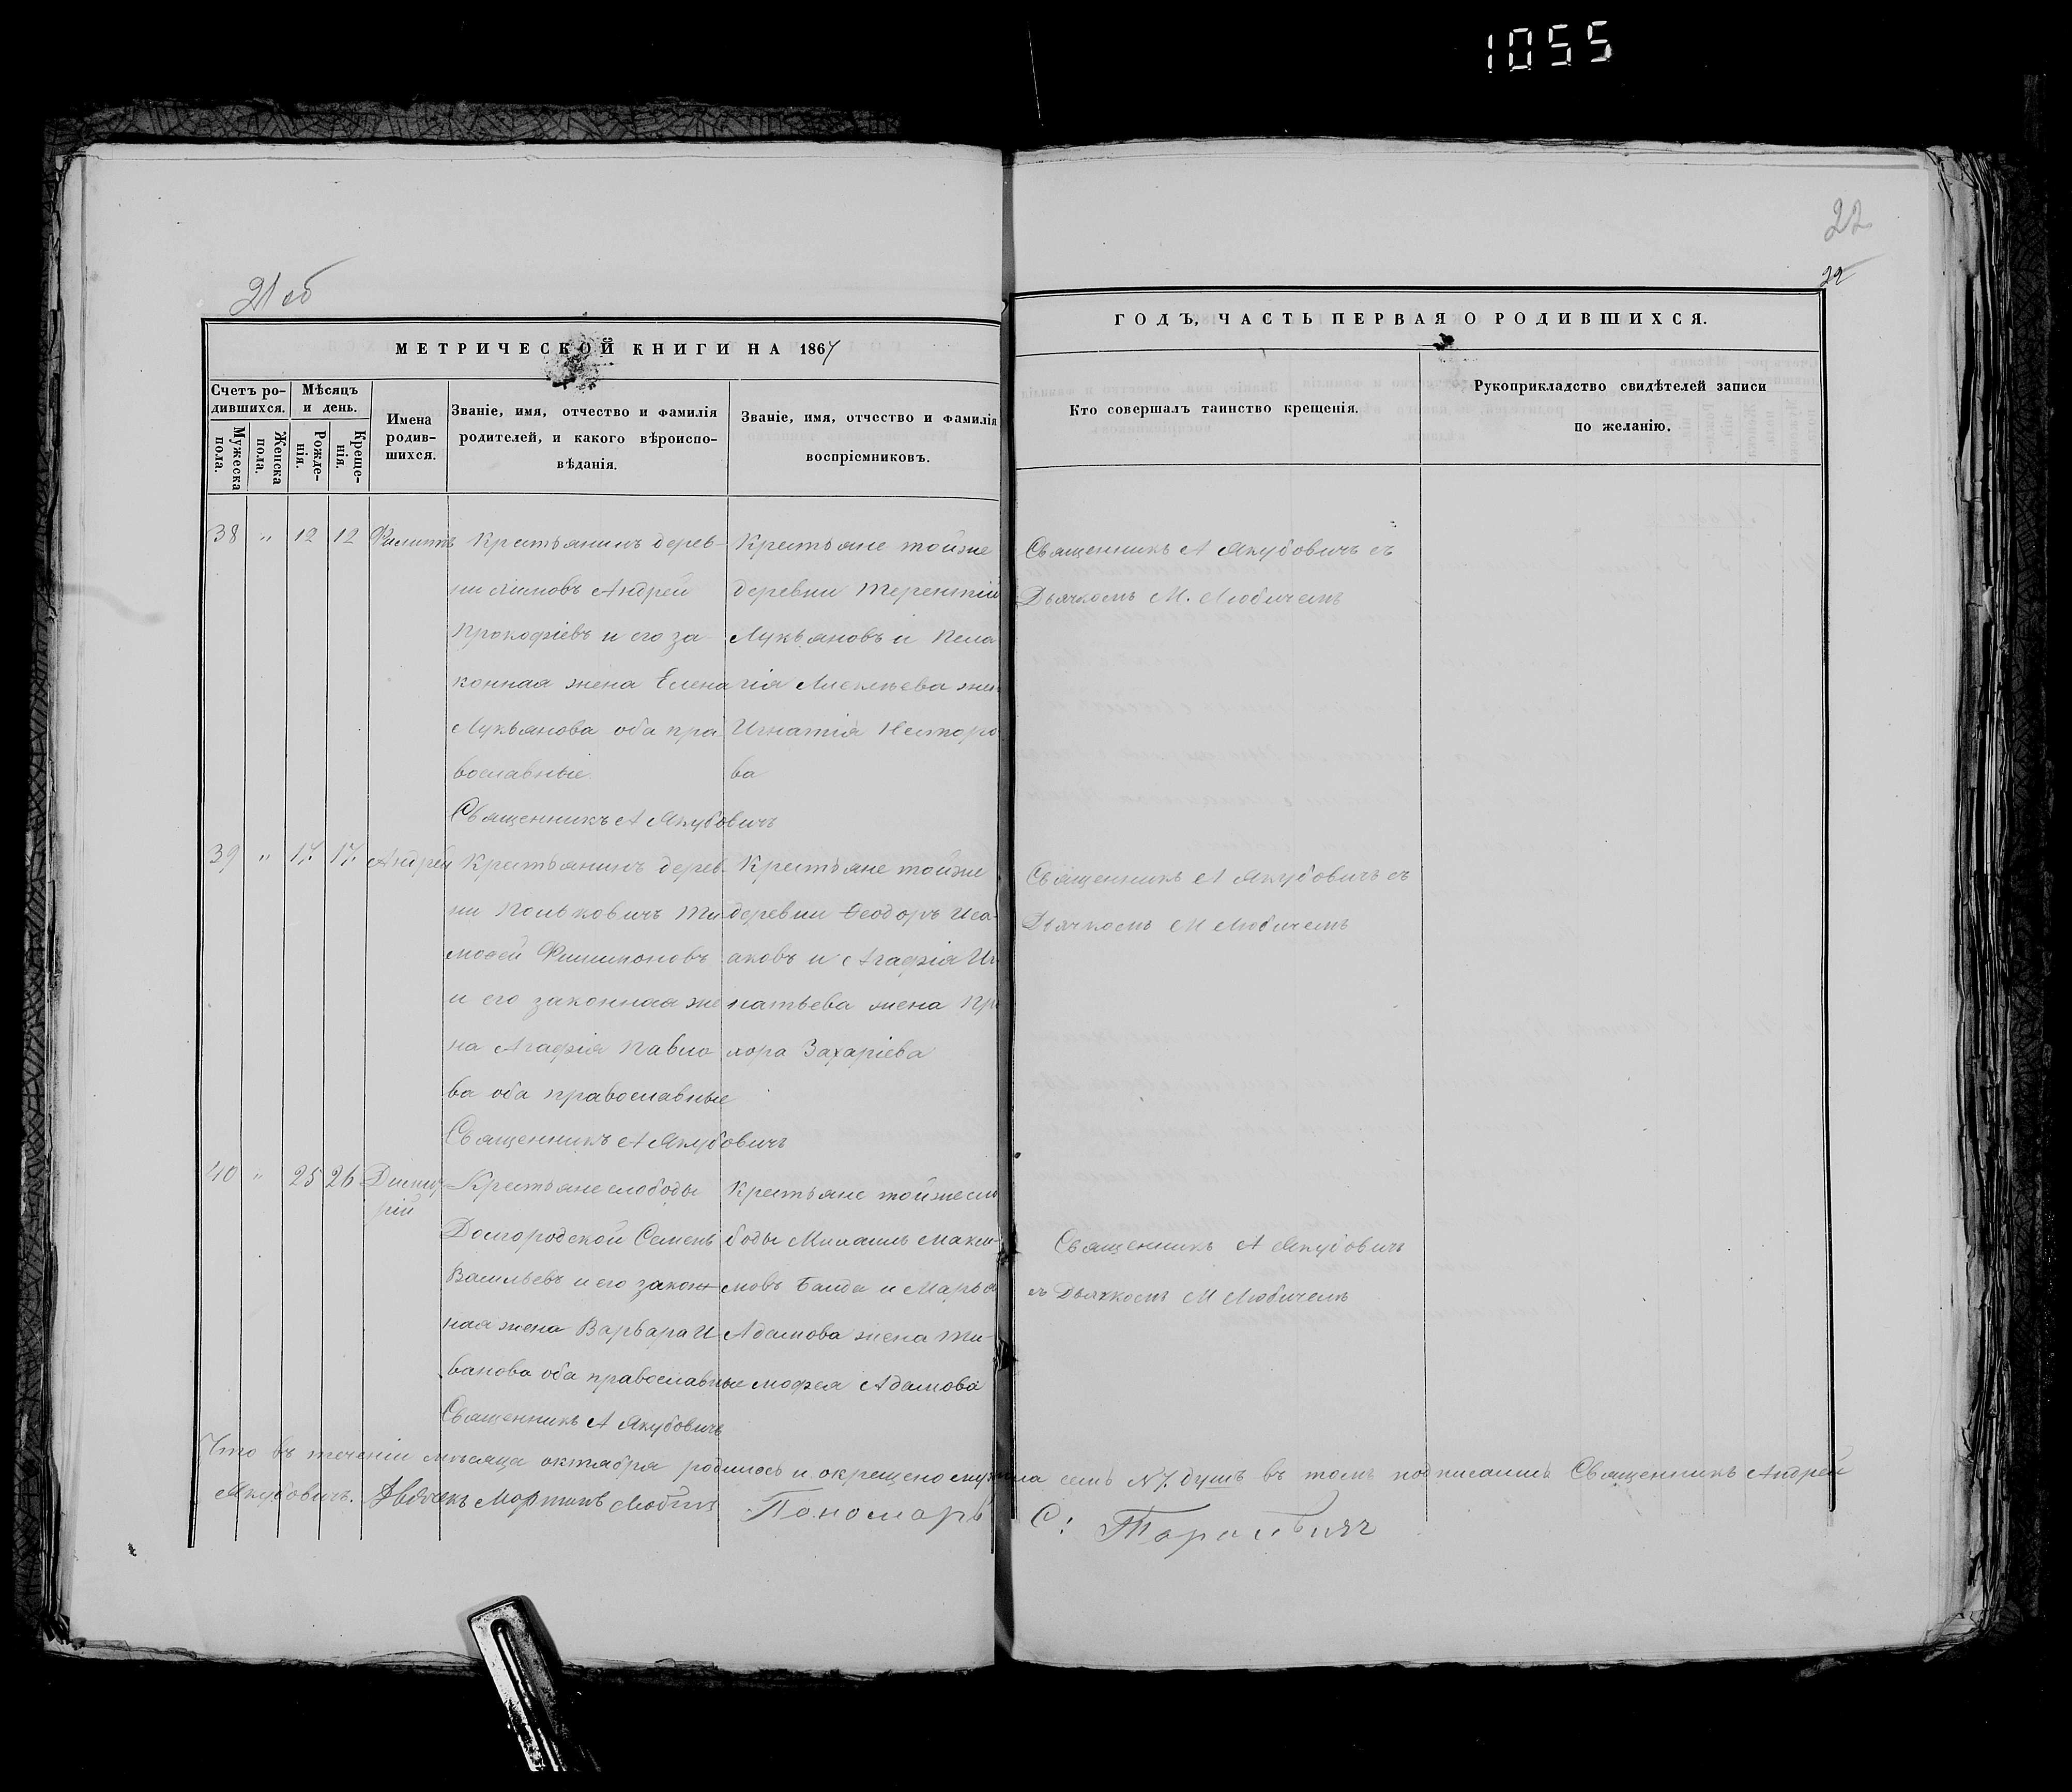 1055
22
22
21 об
МЕТРИЧЕСКОЙ КНИГИ НА 1867
ГОДЪ, ЧАСТЬ ПЕРВАЯ О РОДИВШИХСЯ.
Счетъ ро-
дившихся.
Мужеска
пола.
Женска
пола.
Мѣсяцъ
и день.
Рожде-
нія.
Креще-
нія.
Имена
родив-
шихся.
Званіе, имя, отчество и фамилія
родителей, и какого вѣроиспо-
вѣданія.
Званіе, имя, отчество и фамилія
воспріемниковъ.
Кто совершалъ таинство крещенія.
Рукоприкладство свидѣтелей записи
по желанію.
38 " 12 12 Филиппъ
Крестьянинъ дерев-
ни Андрей
Прокофіевъ и его за
конная жена Елена
Лукьянова оба пра
вославные.
Священникъ А Якубовичъ
Крестьяне тойже
деревни Терентій
Лукьяновъ и Пела
гія Алексѣева жен
Игнатія Несторо
ва
Священникъ А Якубовичъ съ
Дьячкомъ М. Любичемъ
39 " 17. 17. Андрей
Крестьянинъ дерев-
ни Польковичъ Ти
моѳей Филимоновъ
и его законная же
на Агафія Павло
ва оба православные
Священникъ А Якубовичъ
Крестьяне тойже
деревни Ѳеодоръ Иса-
аковъ и Агафія Иг
натьева жена
Захаріева
Священникъ А Якубовичъ съ
Дьячкомъ М Любичемъ
40 " 25 26 Дмит
рій
Крестьяне слободы
Семенъ
Васильевъ и его закон
ная жена Варвара И
ванова оба православные
Священникъ А Якубовичъ
Крестьяне тойже сло
боды Михаилъ Макси-
мовъ и Марья
Адамова жена Ти-
мофея Адамова
Священникъ А Якубовичъ
съ Дьячкомъ М Любичемъ
Что въ теченіи мѣсяца октября родилось и окрещено мужска пола семь №7. душъ въ томъ подписались Священникъ Андрей
Якубовичъ. Дьячекъ Мартинъ Любичъ Пономарь С: